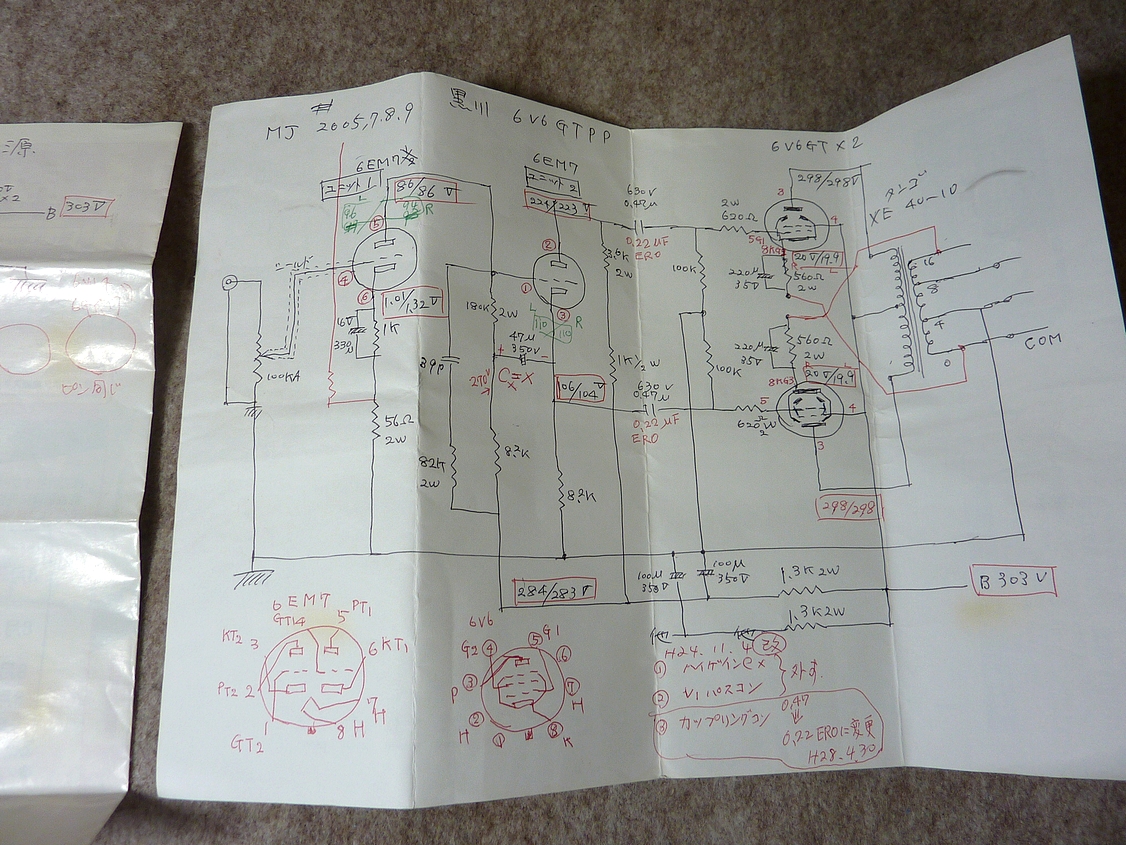 源
B 303V
MJ 2005,7.8.9
黒川 6V6GTPP
6V6GT×2
6EM7
ユニット1
86/86 V
96
94 R
⑤
④
⑥
1.01/1.32V
シールド
16V
330μ
1K
100KA
56Ω
2W
6EM7
ユニット2
224/223 V
②
①
③
L
R
110
110
180K
2W
47μ
350V
+
-
Cx=x
270V
39p
82K
2W
8.2K
8.2K
106/104 V
3.6K
2W
1K 1/2W
630V
0.47μ
0.22μF
ERO
630V
0.47μ
0.22μF
ERO
100K
100K
2W
620Ω
620Ω
298/298V
3
4
5
8
20V/19.9
220μ
35V
560Ω
2W
220μ
35V
560Ω
2W
20V/19.9
5
4
3
298/298
タンゴ
XE 40-10
16
8
4
0
COM
284/283V
100μ
350V
100μ
350V
1.3K 2W
1.3K 2W
B 303V
6EM7
GT1 4
5 PT1
KT2 3
6 KT1
PT2 2
7 H
1
GT2
8 H
6V6
G2 ④
⑤ G1
⑥
P ③
⑦
H
②
H
①
⑧
K
H24.11.4 改
①
②
V1 パスコン
外す
③ カップリングコン
0.47
↓
0.22 EROに変更
H28.4.30
ピン同じ